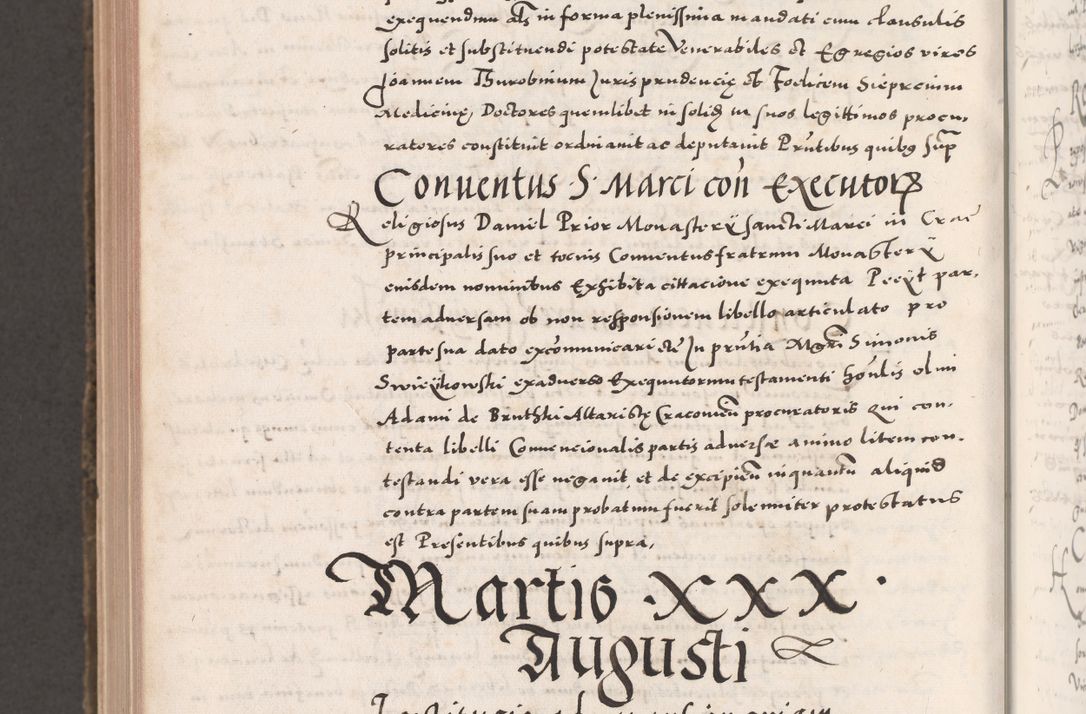 exequendum als in forma plenissima mandati cum clausulis
solitis et substituendi potestate Venerabiles et Egregios viros
Joannem Thurobinum Juris prudencię et Foelicem Sieprcium
Medicinę, Doctores quemlibet in solid in suos legittimos procu-
ratores constituit ordinauit ac deputauit Prntibus quibus Sup
Conuentus S Marci con Executor
Religiosus Daniel Prior Monasterÿ sancti Marci in Crac
principalis suo et tocius Conuentus fratrum Monasterÿ
eiusdem nominibus Exhibita cittacione exequuta Peeÿt par-
tem aduersam ob non responsionem libello articulato pro
parte sua dato excomunicari etc In prntia Mgri Simonis
Swieÿkowski exaduerso Exequutorum testamenti honlis olim
Adami de Bruthki Altaristę Cracouien procuratoris Qui con-
tenta libelli Conuencionalis partis aduersæ animo litem con-
testandi vera esse negauit et de excipien in quantum aliquid
contra partem suam probatum fuerit solenniter protestatus
est Presentibus quibus supra,
Martis · XXX ·
Augusti